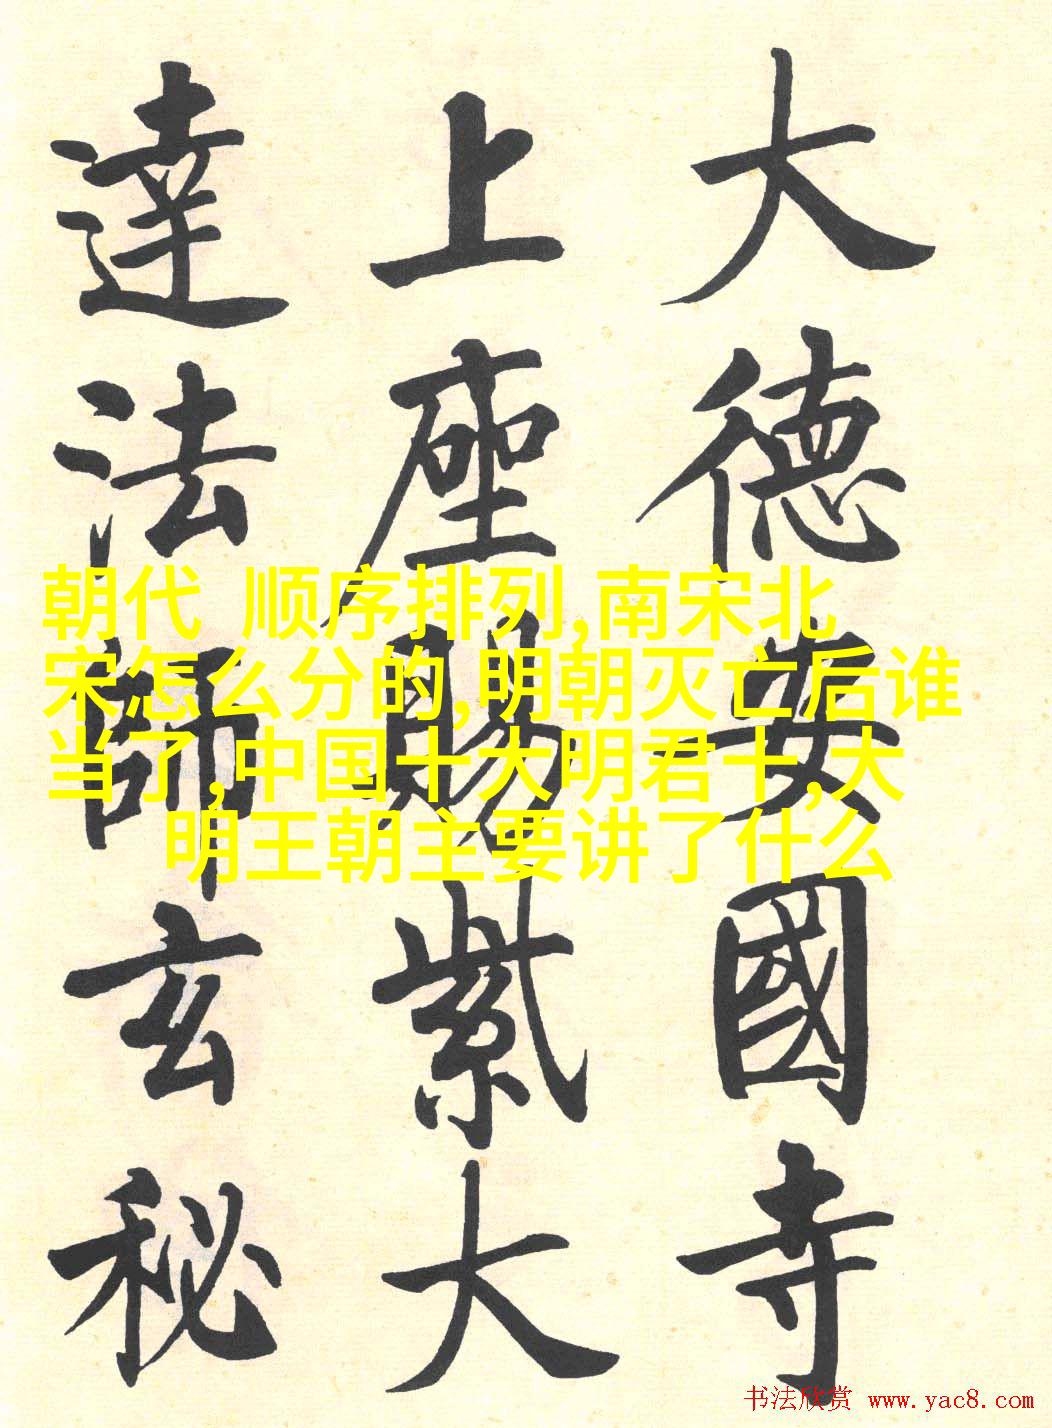 大德安國寺
上座賜紫大
達法師玄秘
朝代 顺序排列,南宋北
宋怎么分的,明朝灭亡后谁
当了,中国十大明君士,大
明王朝主要讲了什么
书法欣赏 www.yac8.com